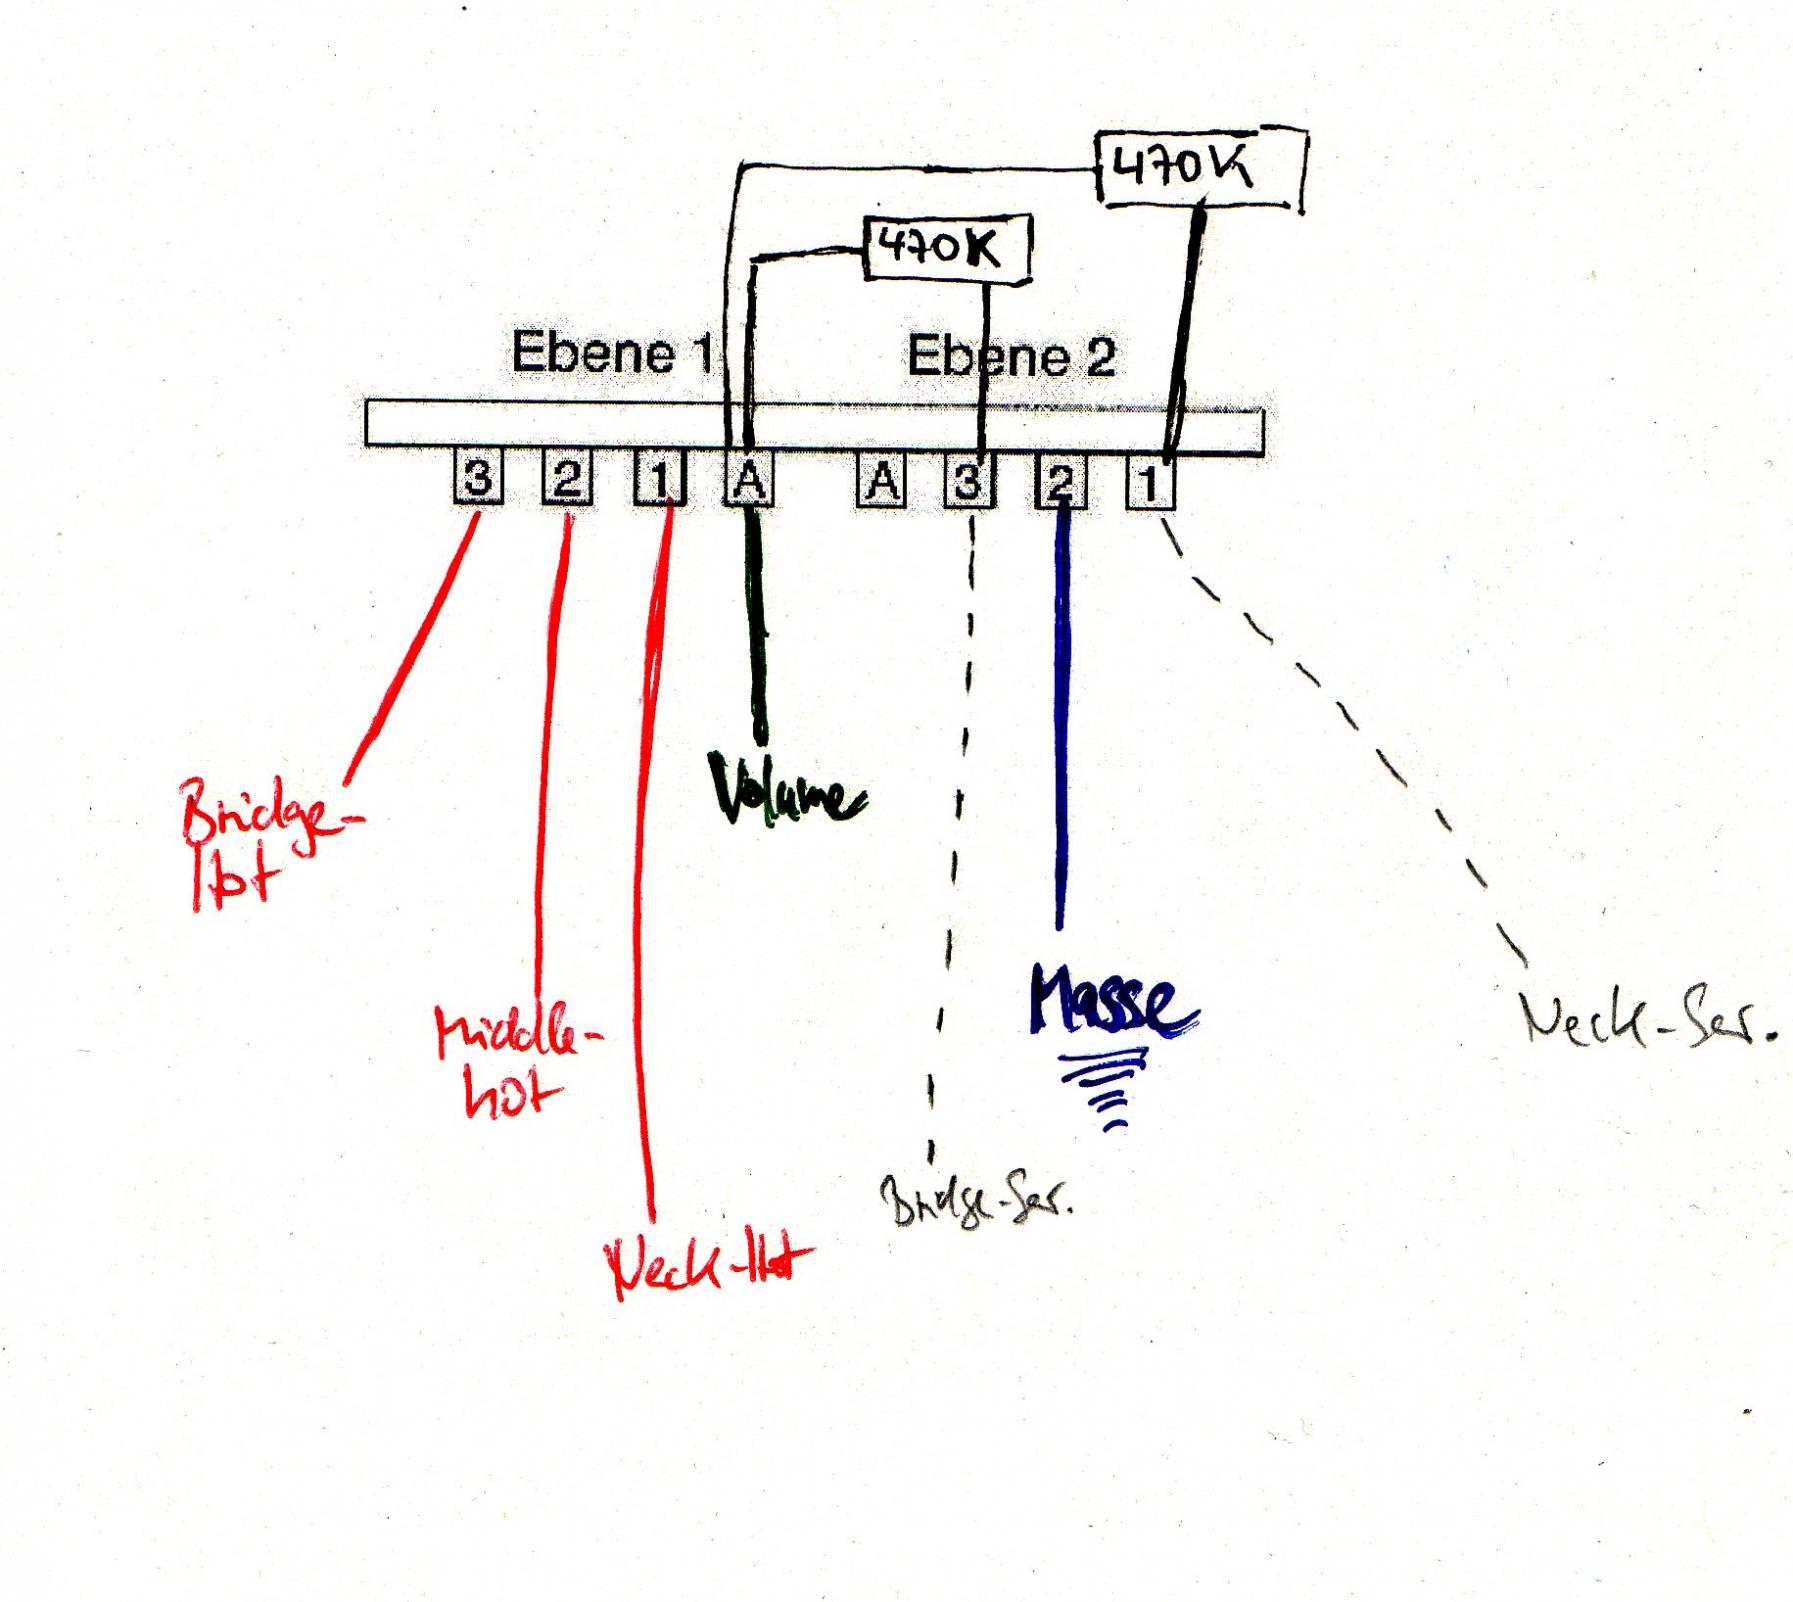 470K
470K
Ebene 1
Ebene 2
3 2 1 A A 3 2 1
Volume
Bridge-
Hot
Masse
Middle-
hot
Neck-Ser.
Bridge-Ser.
Neck-Hot